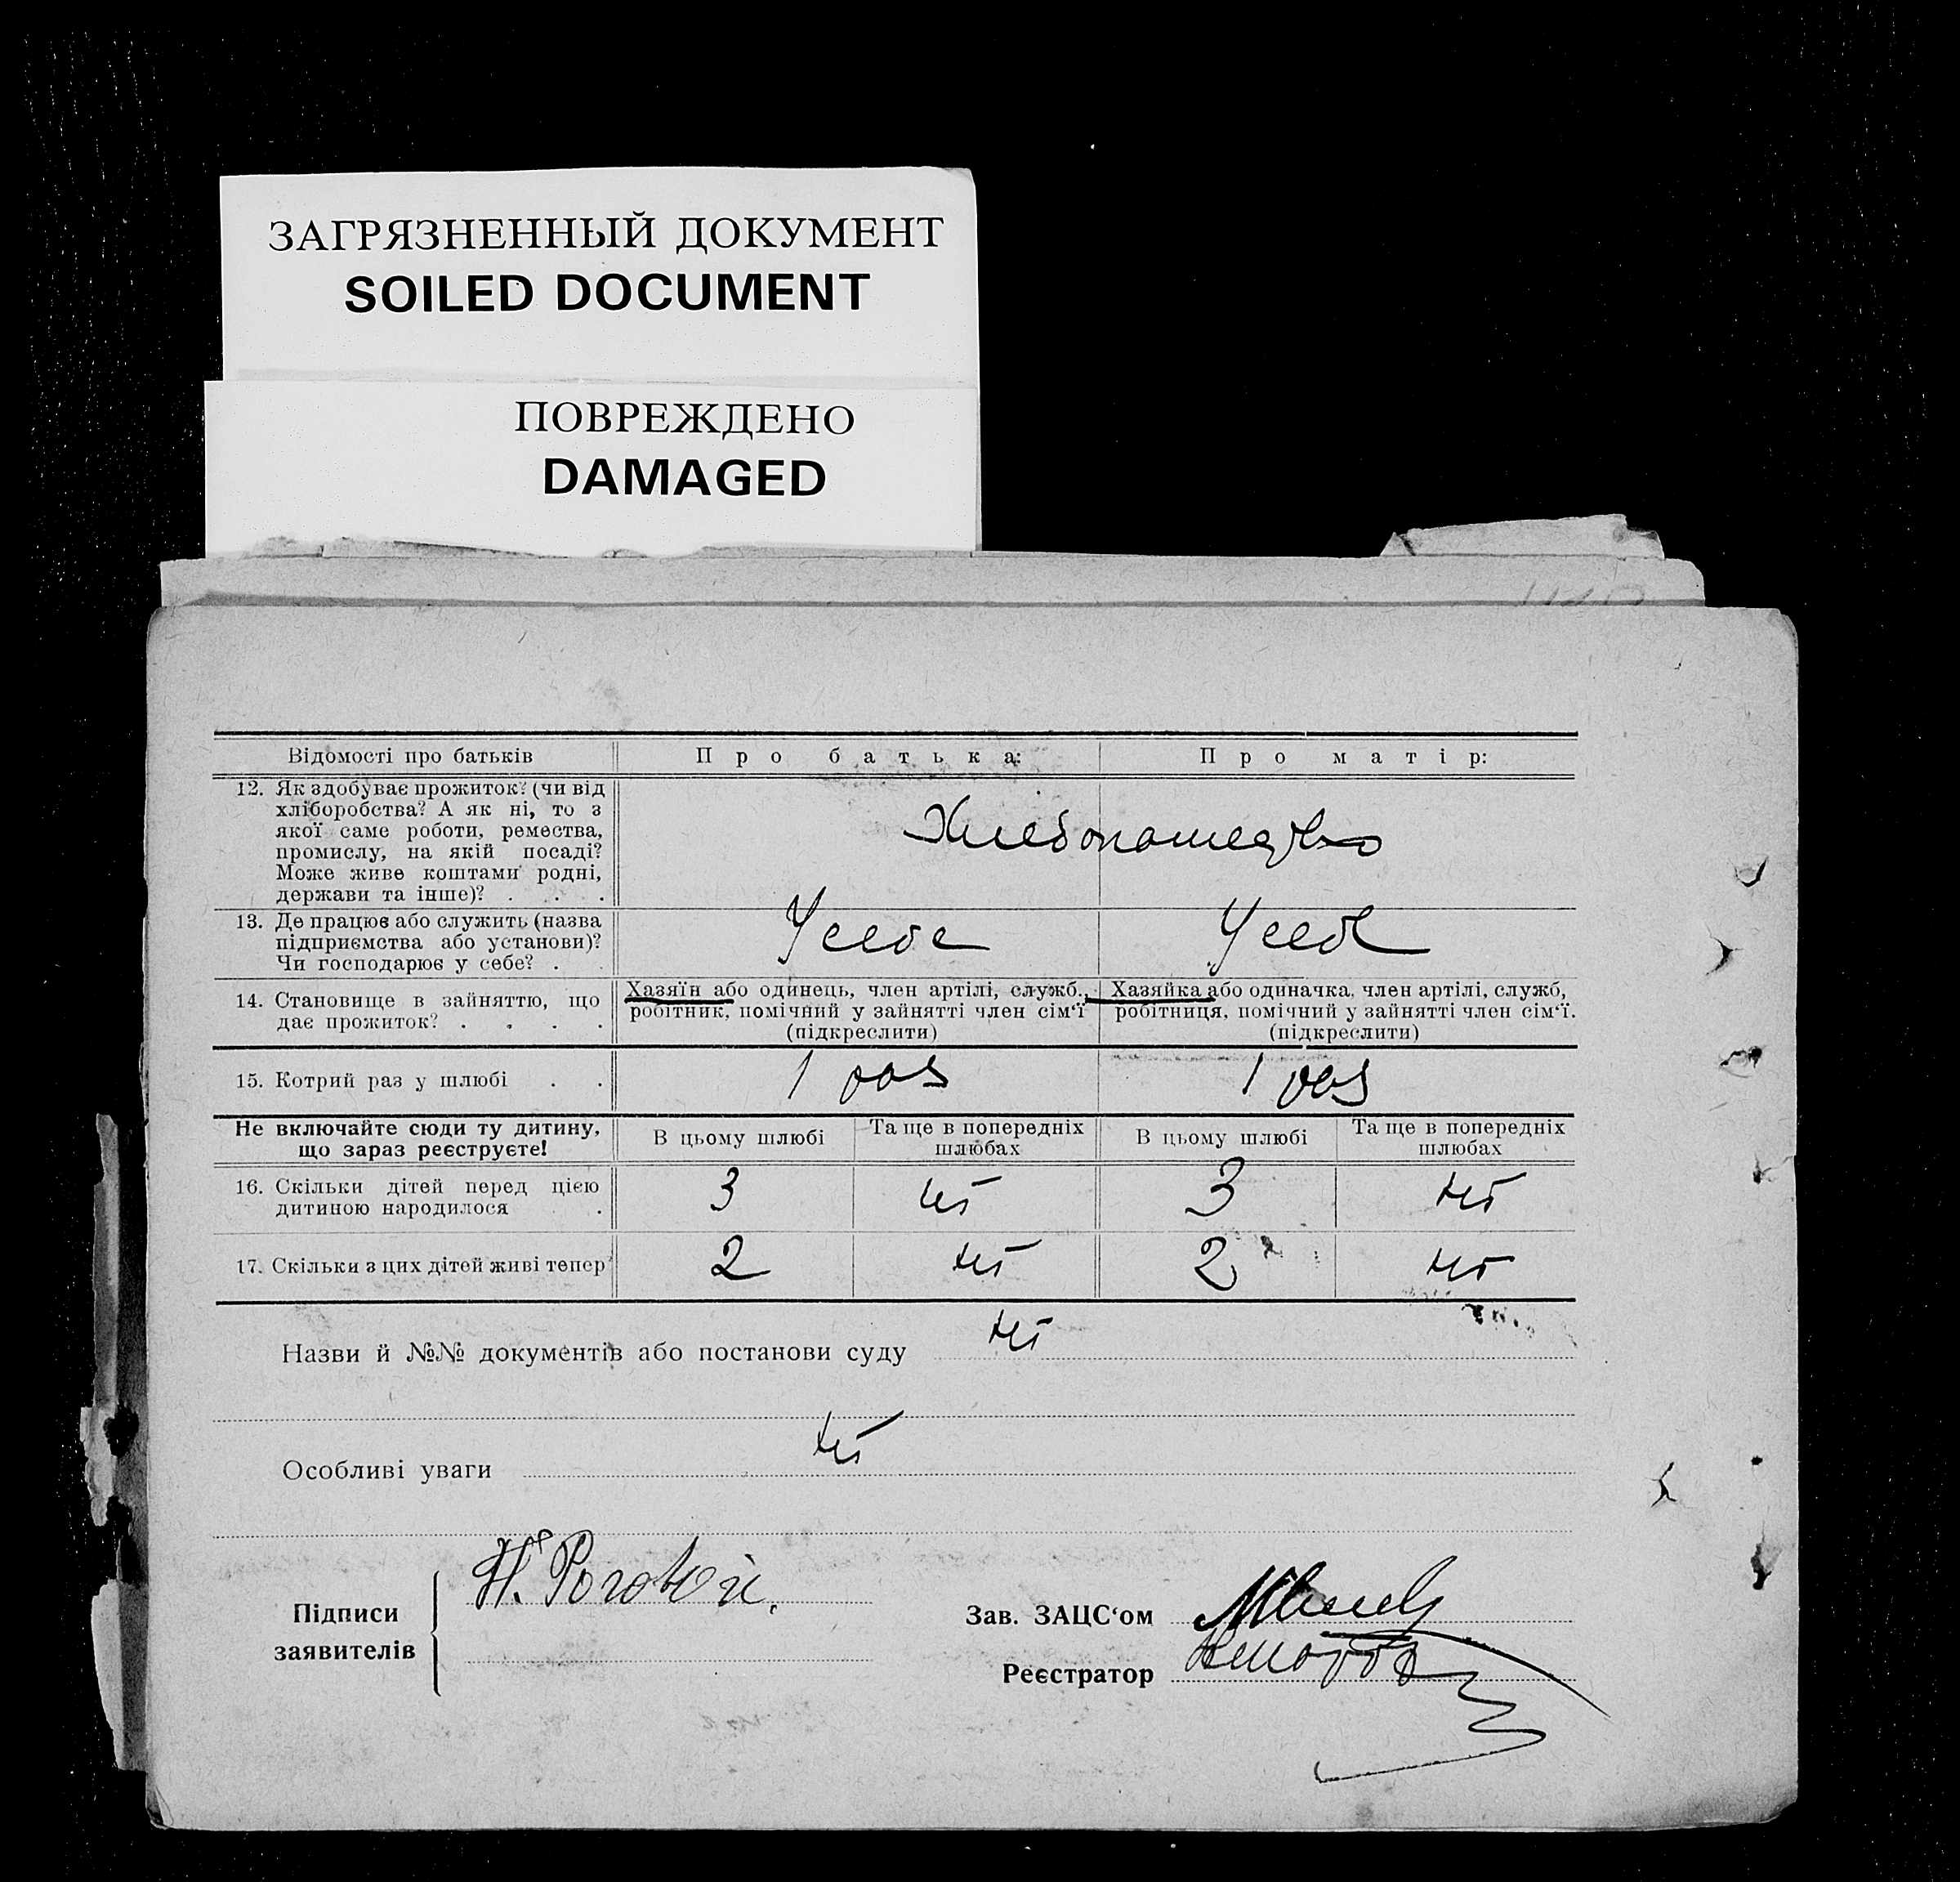 ЗАГРЯЗНЕННЫЙ ДОКУМЕНТ
SOILED DOCUMENT
ПОВРЕЖДЕНО
DAMAGED
Відомості про батьків
Про батька:
Про матір:
12. Як здобуває прожиток? (чи від
хліборобства? А як ні, то з
якої саме роботи, ремества,
промислу, на якій посаді?
Може живе коштами родні,
держави та інше)? . . .
Хлебопашество
13. Де працює або служить (назва
підприємства або установи)?
Чи господарює у себе? . .
У себе
У себе
14. Становище в зайняттю, що
дає прожиток? . . . .
Хазяїн або одинець, член артілі, служб.,
робітник, помічний у зайнятті член сім‘ї
(підкреслити)
Хазяйка або одиначка, член артілі, служб,
робітниця, помічний у зайнятті член сім‘ї.
(підкреслити)
15. Котрий раз у шлюбі . .
1 раз
1 раз
Не включайте сюди ту дитину,
що зараз реєструєте!
В цьому шлюбі
Та ще в попередніх
шлюбах
В цьому шлюбі
Та ще в попередніх
шлюбах
16. Скільки дітей перед цією
дитиною народилося .
3
нет
3
нет
17. Скільки з цих дітей живі тепер
2
нет
2
нет
Назви й №№ документів або постанови суду нет
Особливі уваги нет
Підписи
заявителів
Зав. ЗАЦС‘ом
Реєстратор